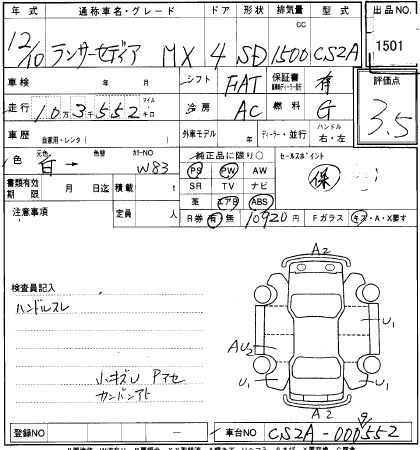 年式 通称車名・グレード ドア 形状 排気量 型式 出品NO.
12/10 ランサーセディア MX 4 SD 1500 CC CS2A 1501
車検 年 月 シフト FAT 保証書 有 評価点
走行 10万3552 マイル キロ 冷房 AC 燃料 G 3.5
車歴 自家用・レンタ( ) 外車モデル 年 ディーラー・並行 ハンドル 右・左
色 元色 白 → 色替 カラーNO W83 純正品に限り○ セールスポイント
PS PW AW 保
書類有効期限 月 日迄 積載 t SR TV ナビ
革 エアB ABS
注意事項 定員 人 R券 有 無 10920円 Fガラス キズ・A・X要す
検査員記入
ハンドルスレ
A2
U1
AU2
U1 U1
A2
小キズU Pアセ
カンバンアト
登録NO 車台NO CS2A-0009552